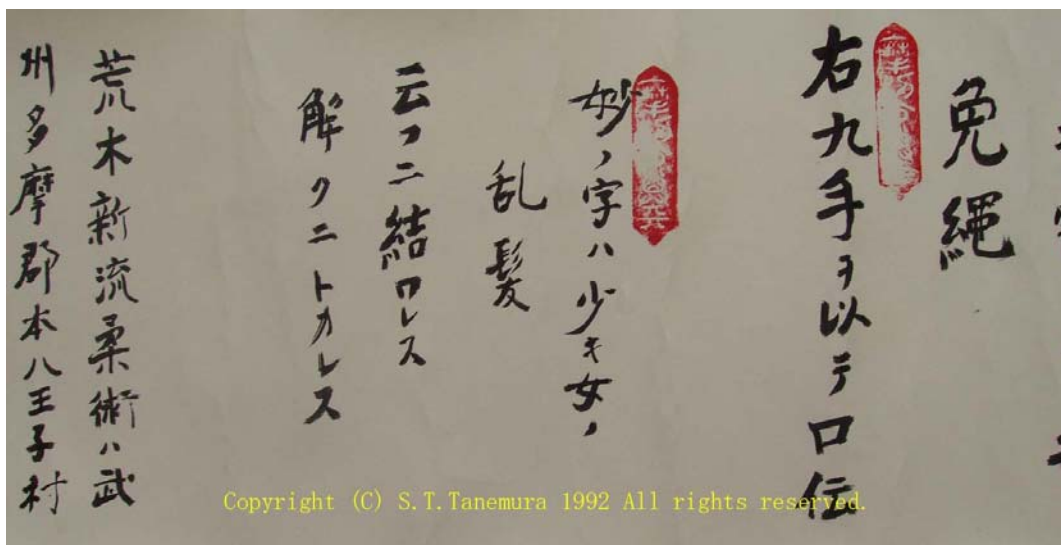 免縄
右九手ヲ以テ口伝
妙ノ字ハ少キ女ノ
乱髪
云フニ結ワレス
解クニトカレス
荒木新流柔術ハ武
州多摩郡本八王子村
Copyright (C) S.T.Tanemura 1992 All rights reserved.